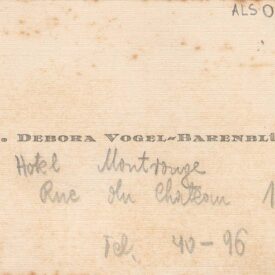 ALSO
. DEBORA VOGEL-BARENBL
Hotel Montrouge
Rue du Château 1
Tel. 40-96